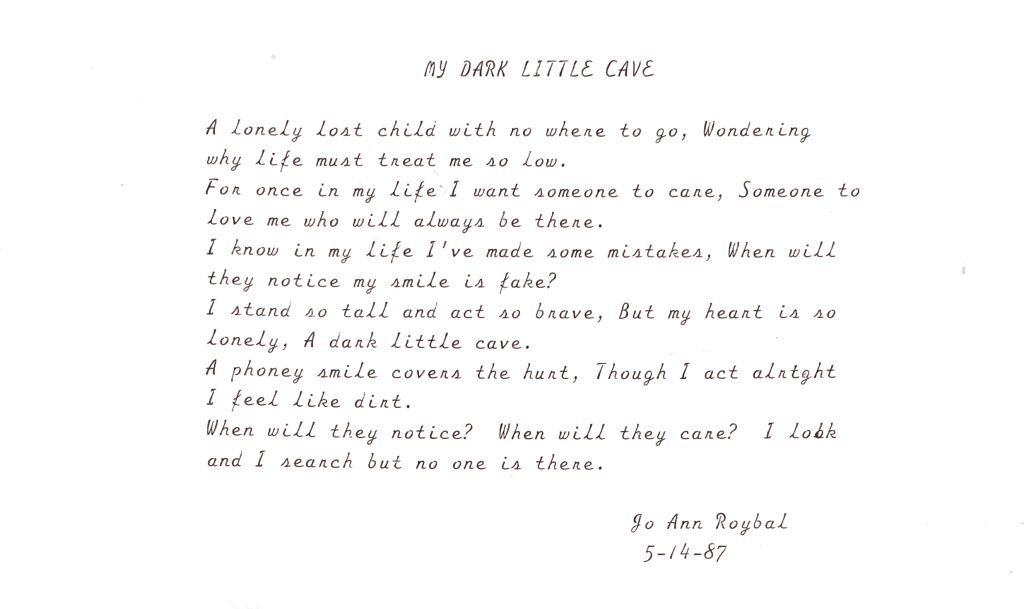 MY DARK LITTLE CAVE
A lonely lost child with no where to go, Wondering
why life must treat me so low.
For once in my life I want someone to care, Someone to
love me who will always be there.
I know in my life I've made some mistakes, When will
they notice my smile is fake?
I stand so tall and act so brave, But my heart is so
lonely, A dark little cave.
A phoney smile covers the hurt, Though I act alrtght
I feel like dirt.
When will they notice?  When will they care?  I look
and I search but no one is there.
Jo Ann Roybal
5-14-87